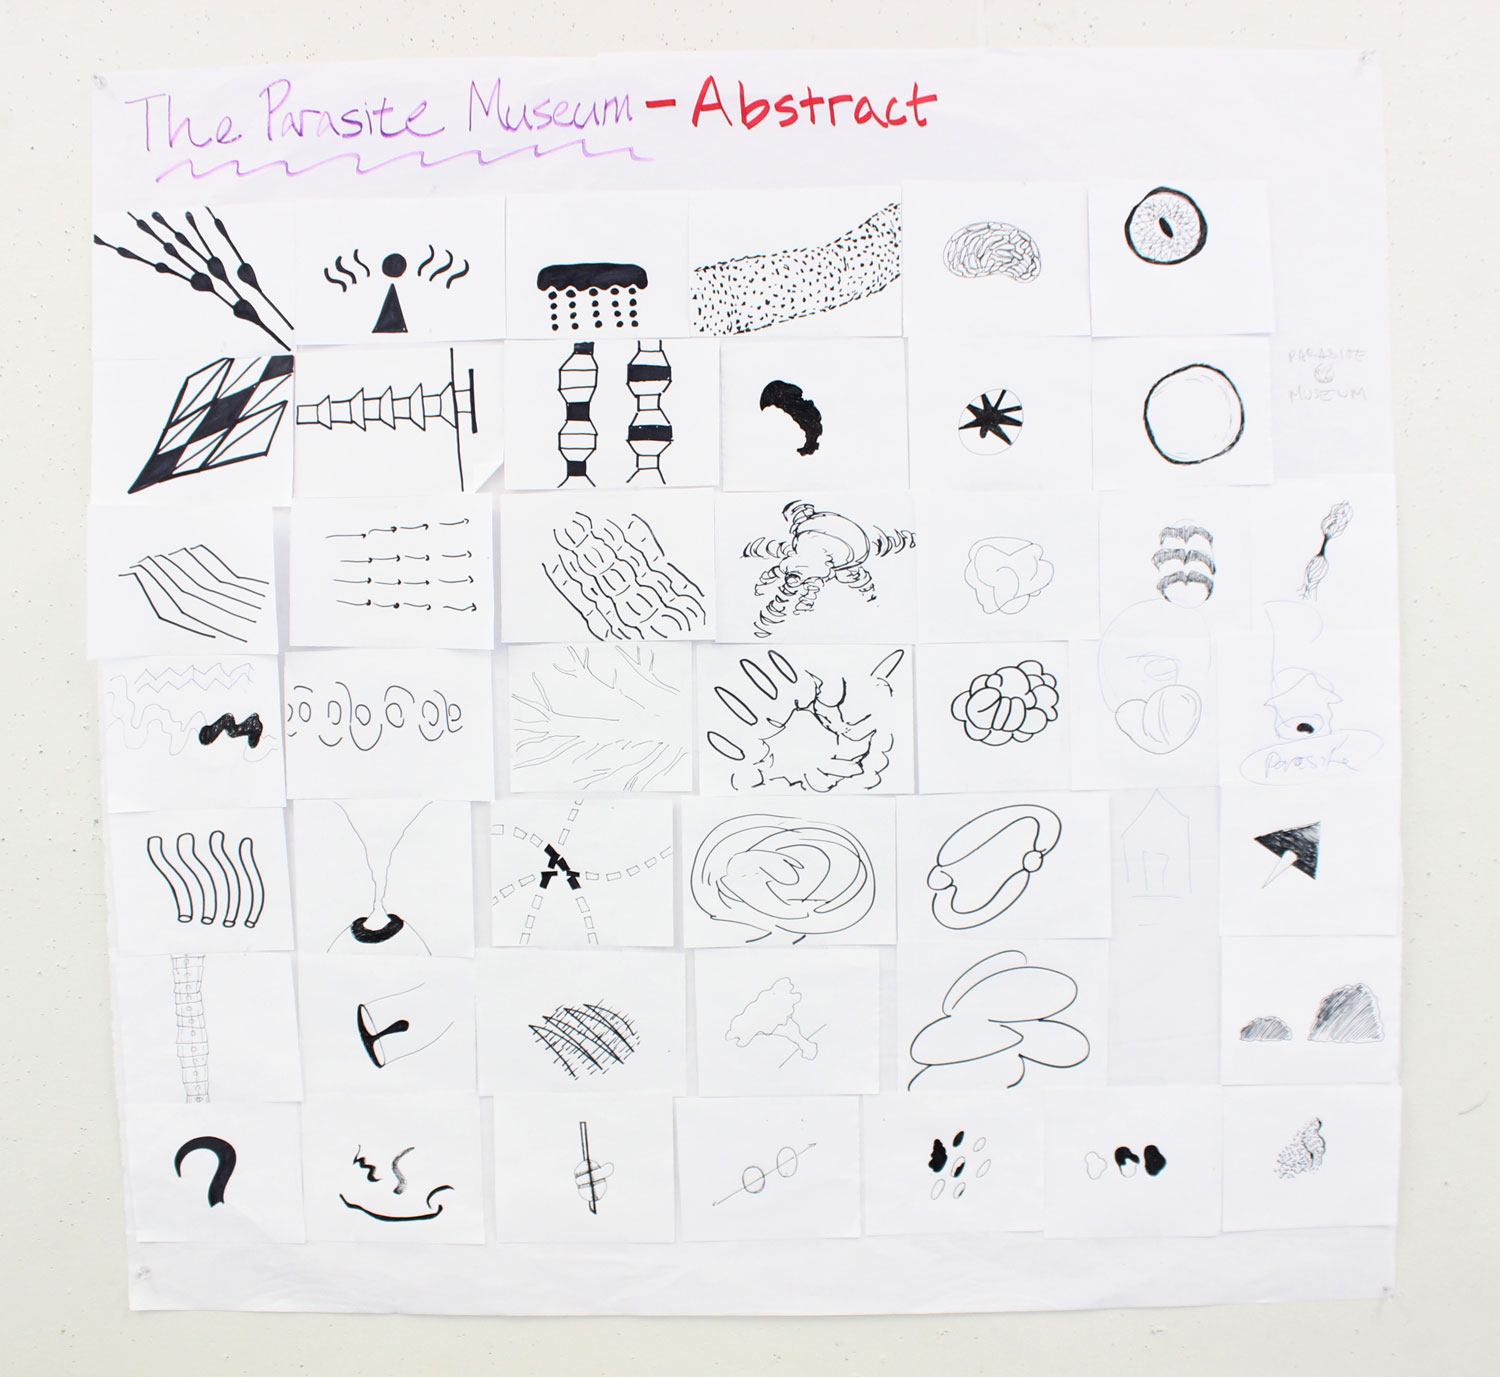 The Parasite Museum - Abstract
PARASITE
MUSEUM
Parasite